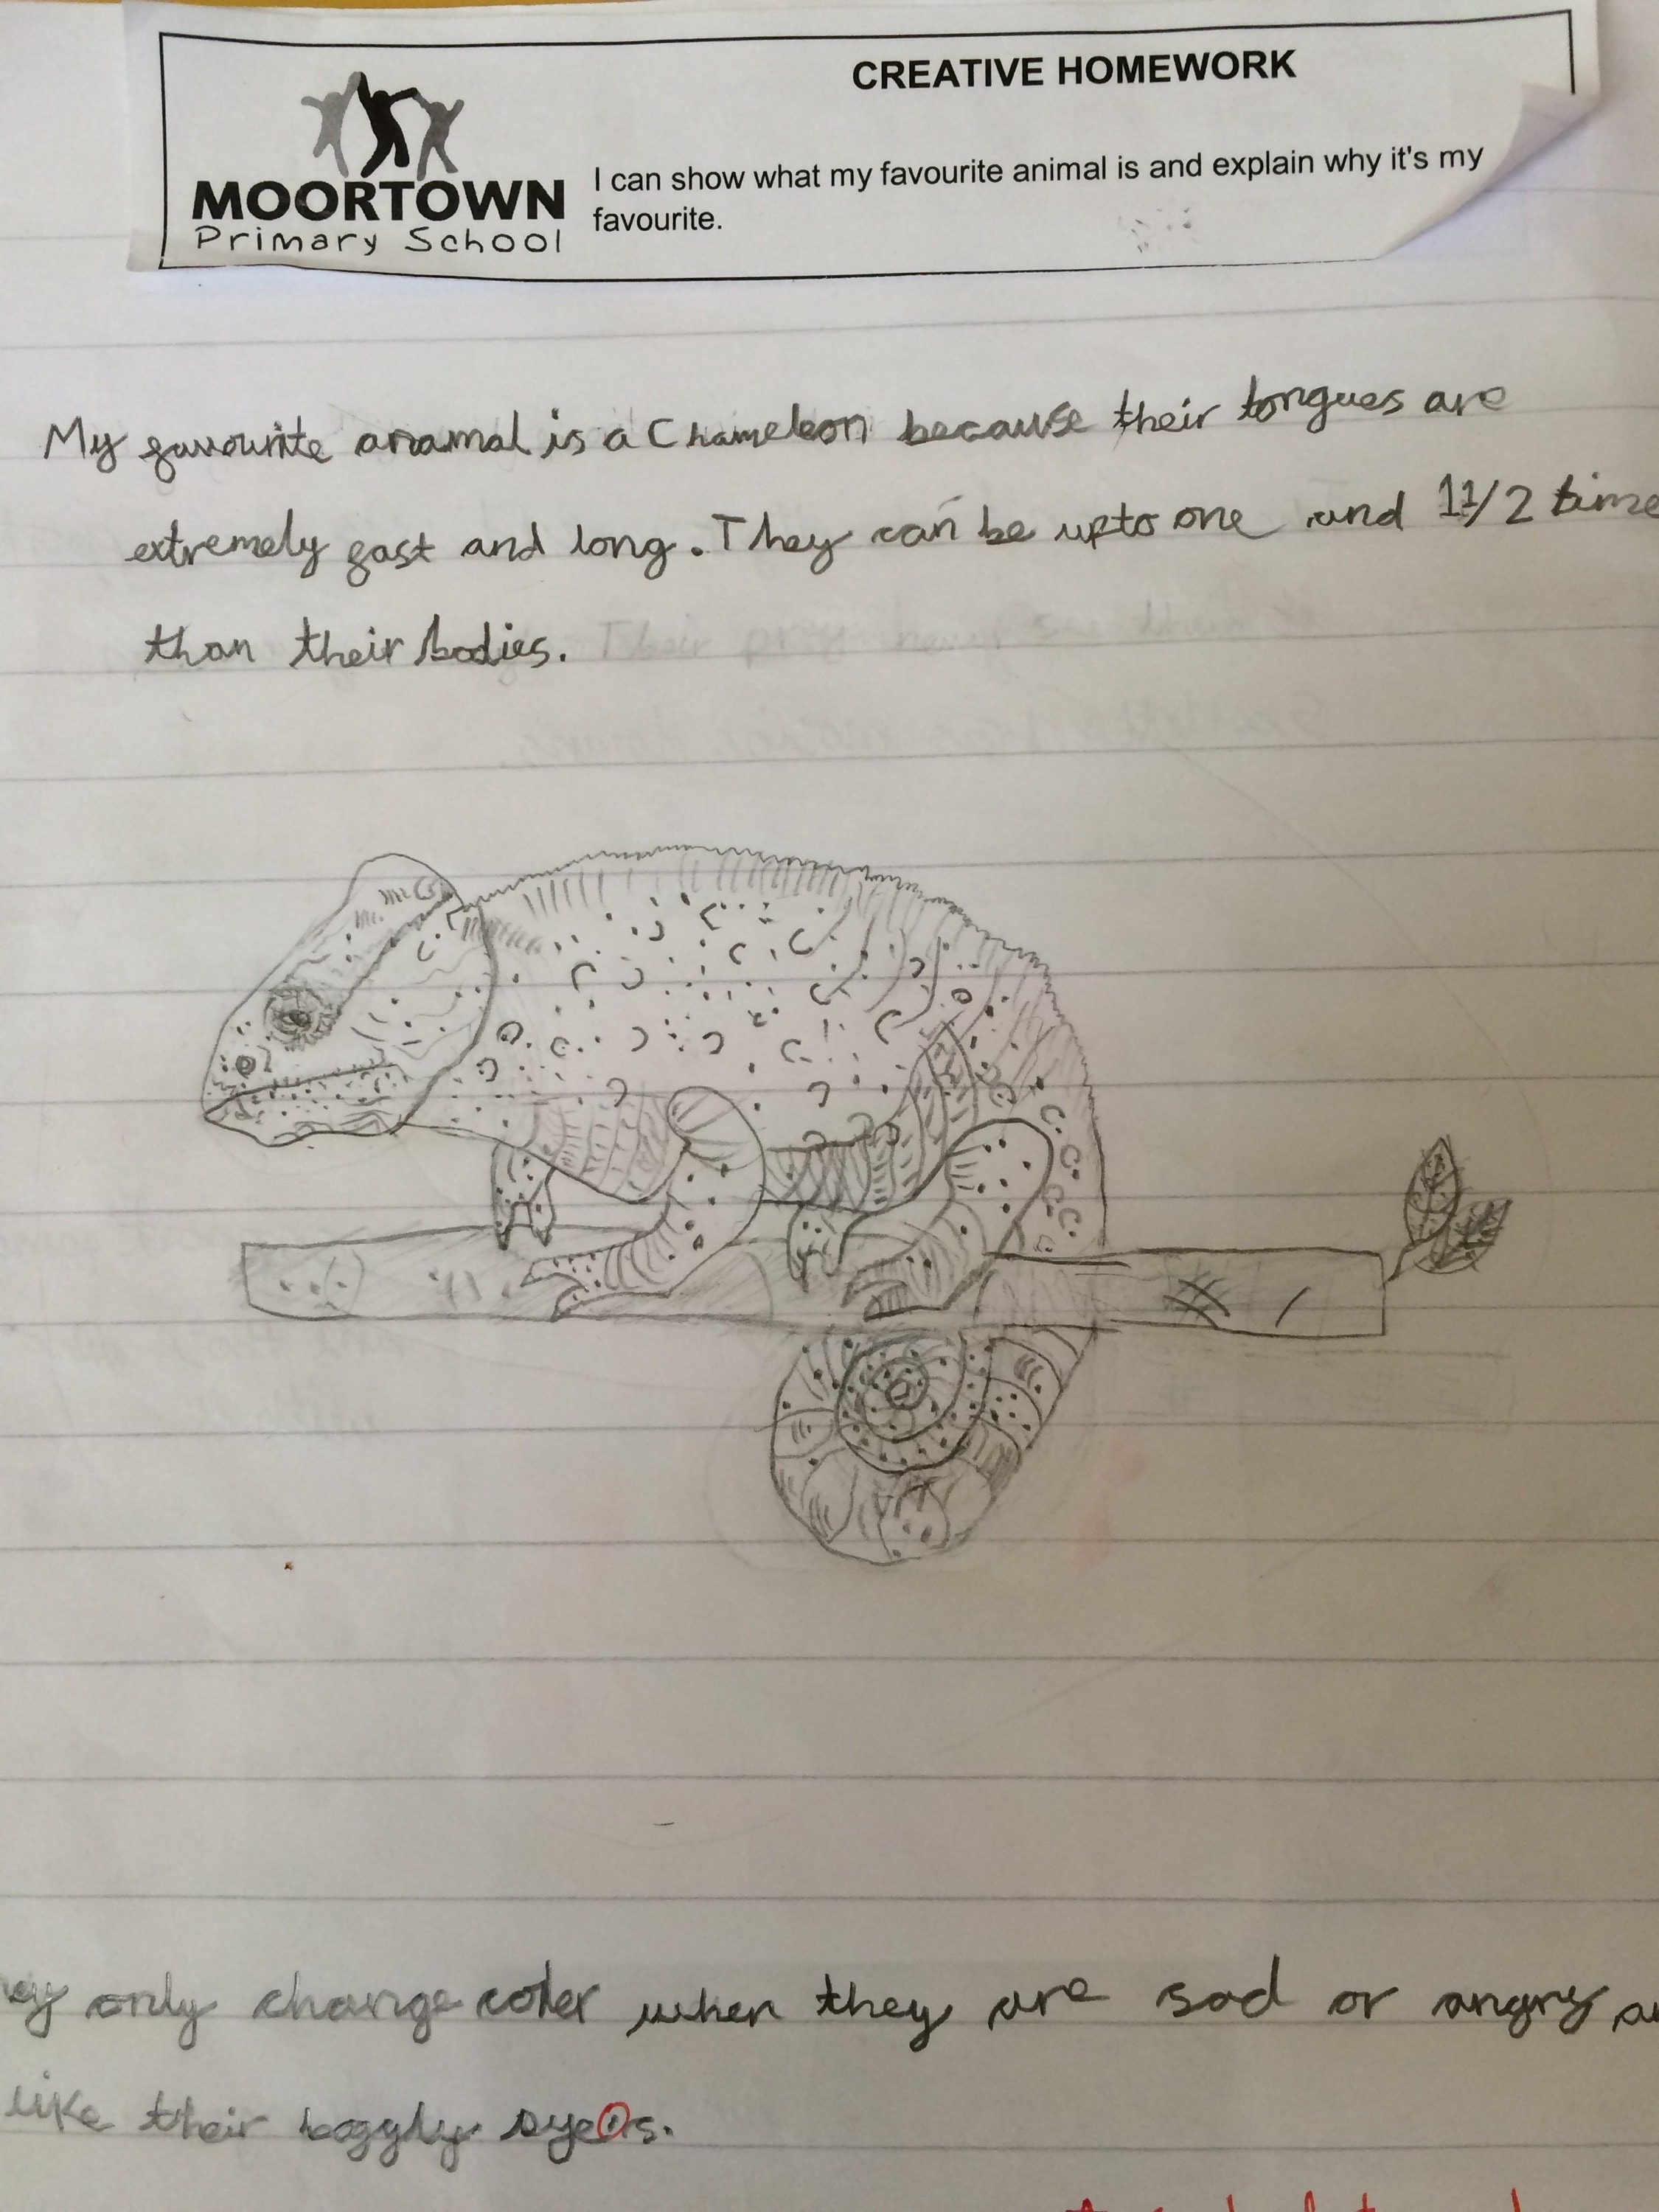 CREATIVE HOMEWORK
MOORTOWN
Primary School
I can show what my favourite animal is and explain why it's my
favourite.
My favourite anamal is a Chameleon because their tongues are
extremely fast and long. They can be upto one and 11/2 time
than their bodies.
only change coler when they are sad or angry
like their boggly eyes.